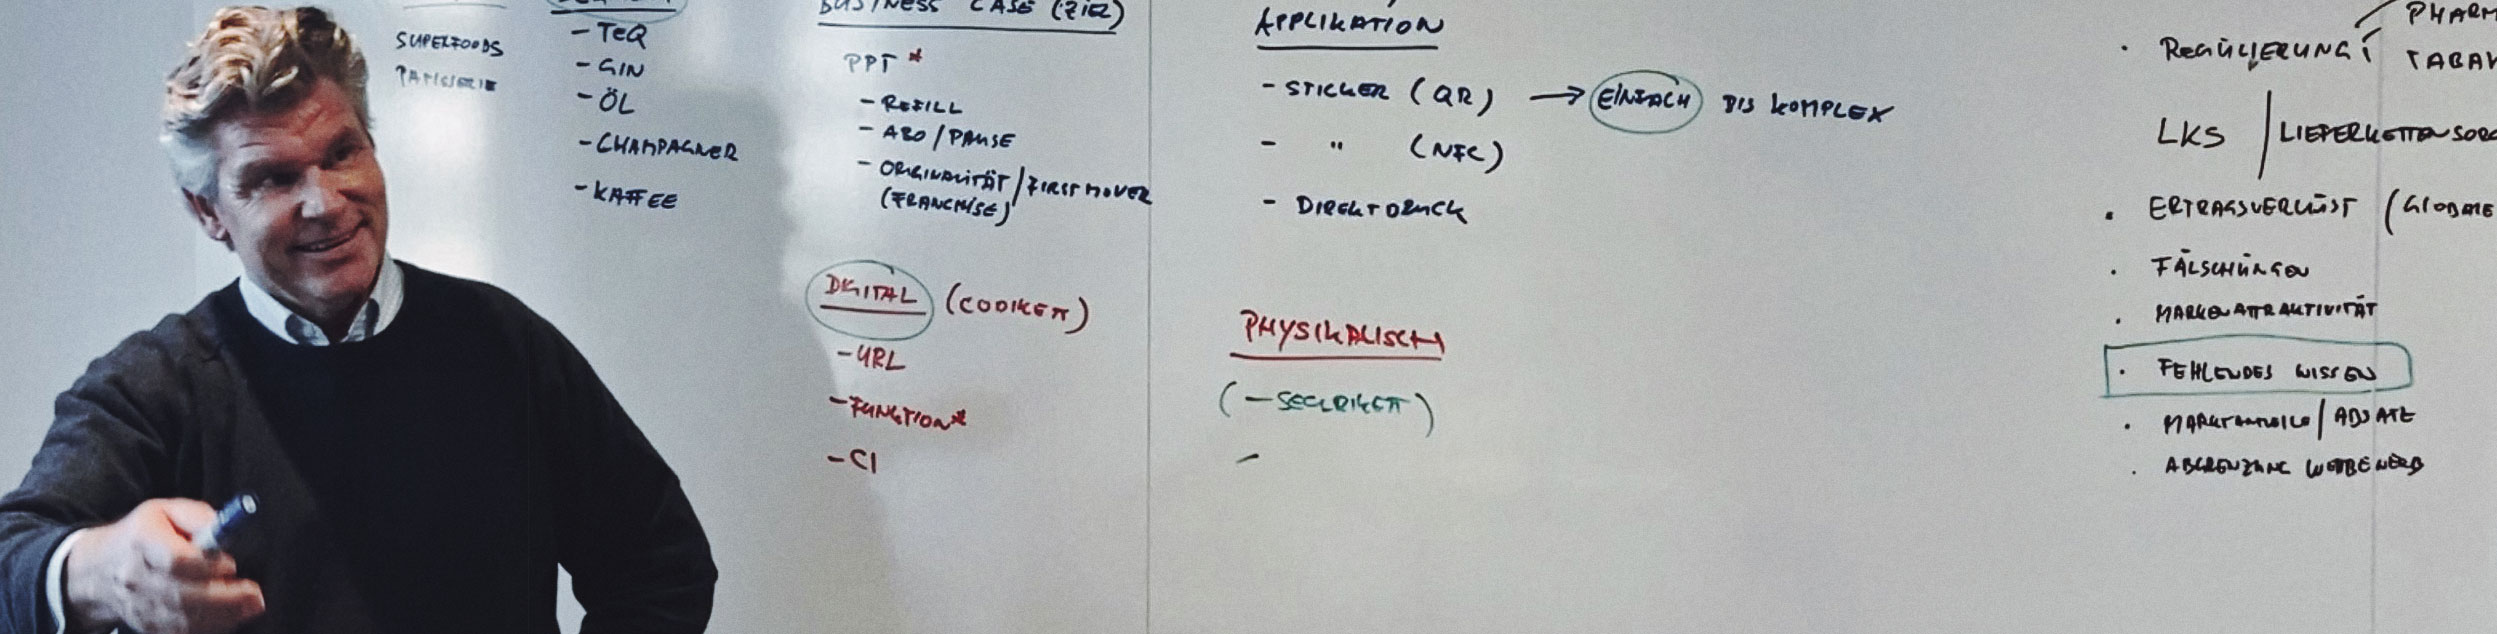 SUPERFOODS
PATISSERIE
- TEQ
- GIN
- ÖL
- CHAMPAGNER
- KAFFEE
BUSINESS CASE (ZIEL)
PPT *
- REFILL
- ABO / PAUSE
- ORIGINALITÄT / FIRST MOVER
(FRANCHISE)
DIGITAL (CODIKETT)
- URL
- FUNKTION*
- CI
APPLIKATION
- STICKER (QR) → EINFACH BIS KOMPLEX
- " (NFC)
- DIREKTDRUCK
PHYSIKALISCH
(- SECURIKETT)
-
PHARM
· REGULIERUNG
TABAK
LKS / LIEFERKETTENSORG
· ERTRAGSVERLUST (GLOBALE
· FÄLSCHUNGEN
· MARKENATTRAKTIVITÄT
· FEHLENDES WISSEN
· MARKTANTEILE / ABSATZ
· ABGRENZUNG WETTBEWERB